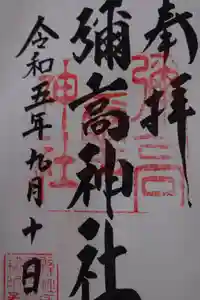 奉拝
彌高神社
令和五年九月十日
彌高
神社